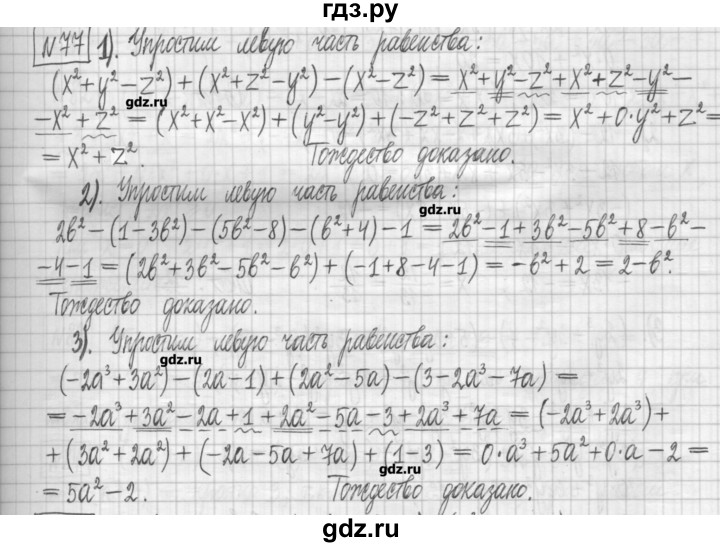 гдз.ру
№77 1). Упростим левую часть равенства:
(x²+y²-z²)+(x²+z²-y²)-(x²-z²)=x²+y²-z²+x²+z²-y²-
gdz.ru
-x²+z²=(x²+x²-x²)+(y²-y²)+(-z²+z²+z²)=x²+0·y²+z²=
=x²+z². Тождество доказано.
2). Упростим левую часть равенства:
gdz.ru
2b²-(1-3b²)-(5b²-8)-(b²+4)-1=2b²-1+3b²-5b²+8-b²-
-4-1=(2b²+3b²-5b²-b²)+(-1+8-4-1)=-b²+2=2-b².
Тождество доказано.
3). Упростим левую часть равенства:
gdz.ru
(-2a³+3a²)-(2a-1)+(2a²-5a)-(3-2a³-7a)=
=-2a³+3a²-2a+1+2a²-5a-3+2a³+7a=(-2a³+2a³)+
+(3a²+2a²)+(-2a-5a+7a)+(1-3)=0·a³+5a²+0·a-2=
gdz.ru
=5a²-2. Тождество доказано.
gdz.ru